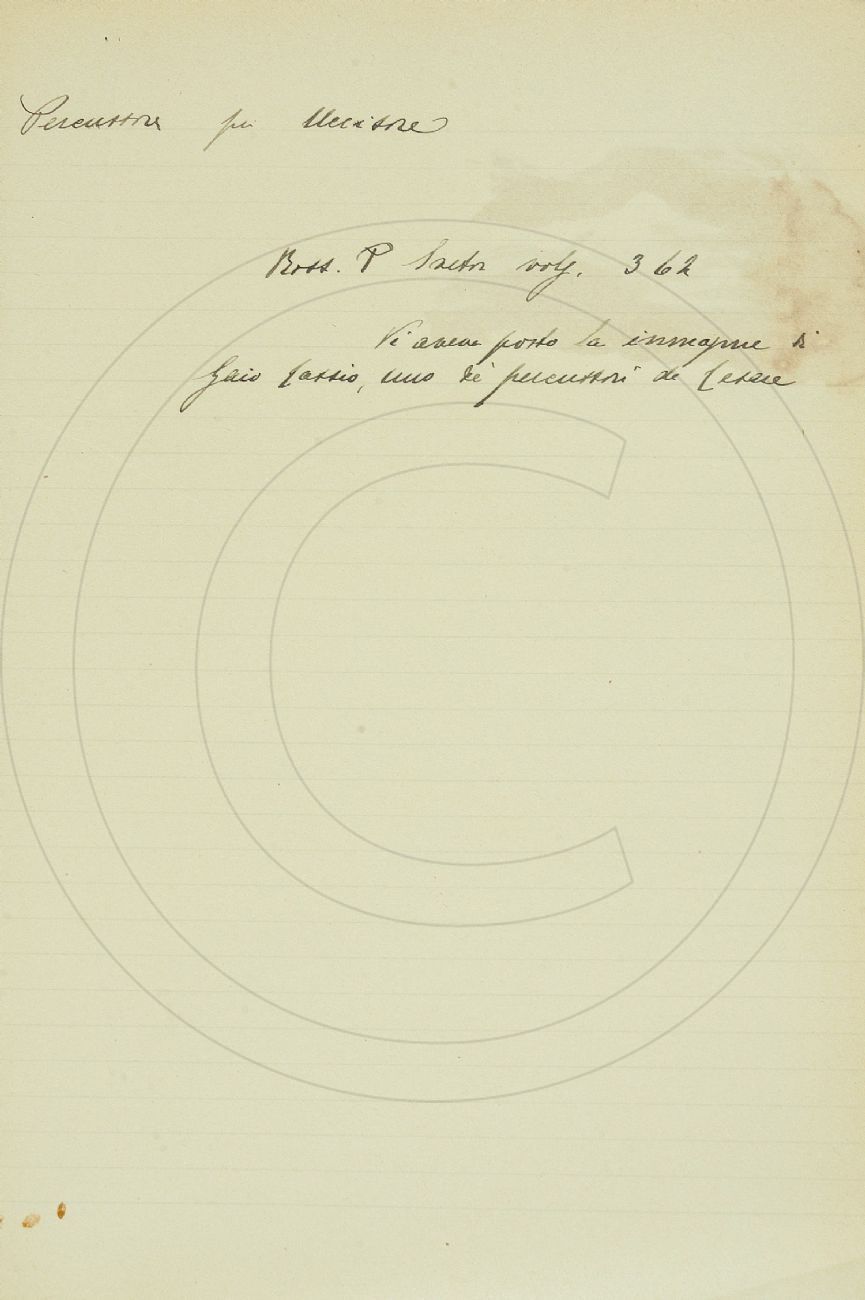 Percussore per Uccisore
Ross. P Sveton volg. 362
Vi aveva posto la immagine di
Gaio Cassio, uno de' percussori di Cesare